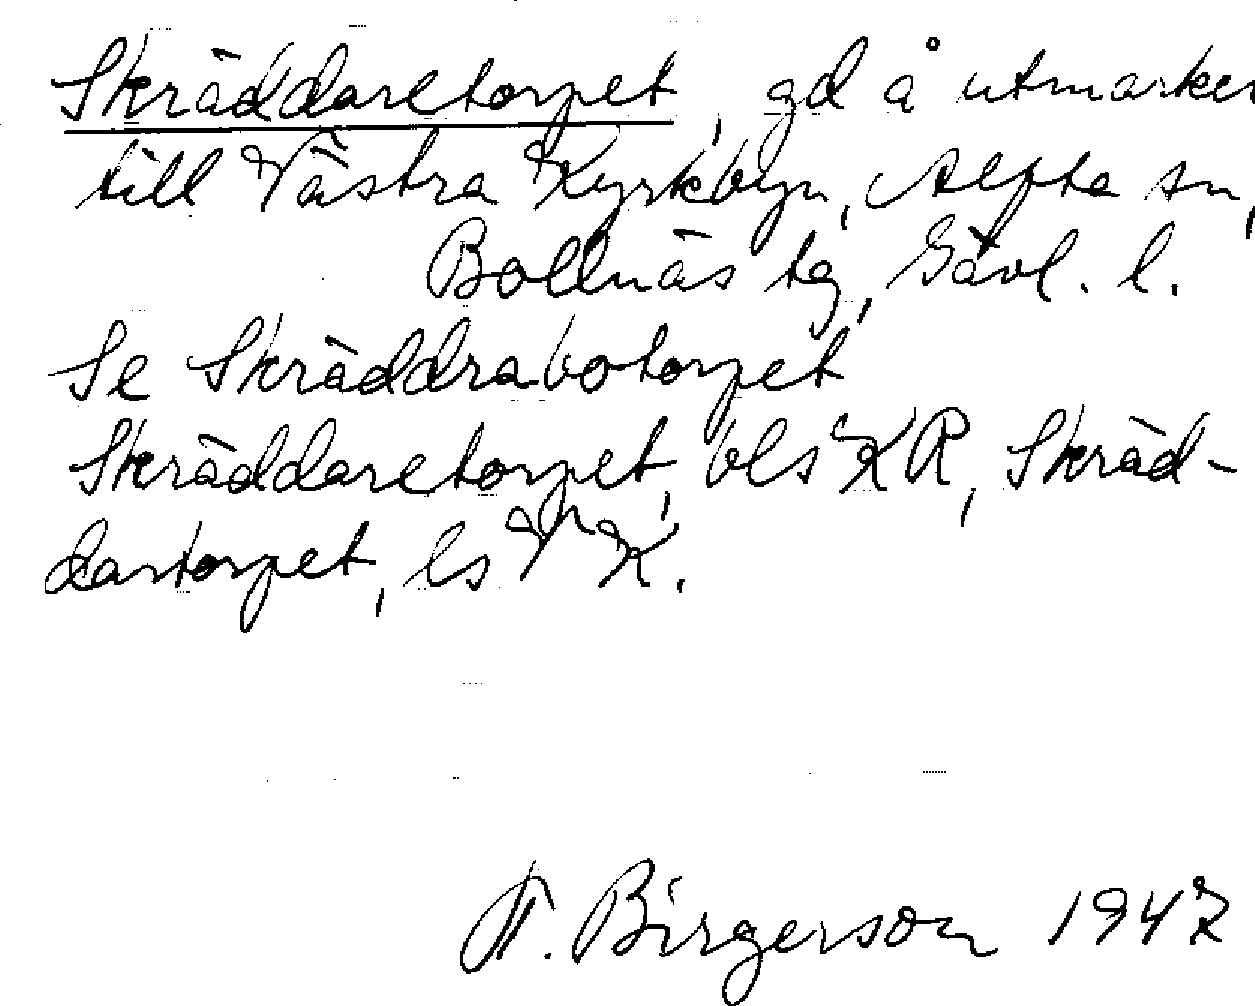 Skräddaretorpet, gd å utmarken
till Västra Kyrkbyn, Alfta sn,
Bollnäs tg, Gävl. l.
Se Skräddrabotorpet
Skräddaretorpet, bls KR, Skräd-
dartorpet, ls VK.
Birgerson 1947